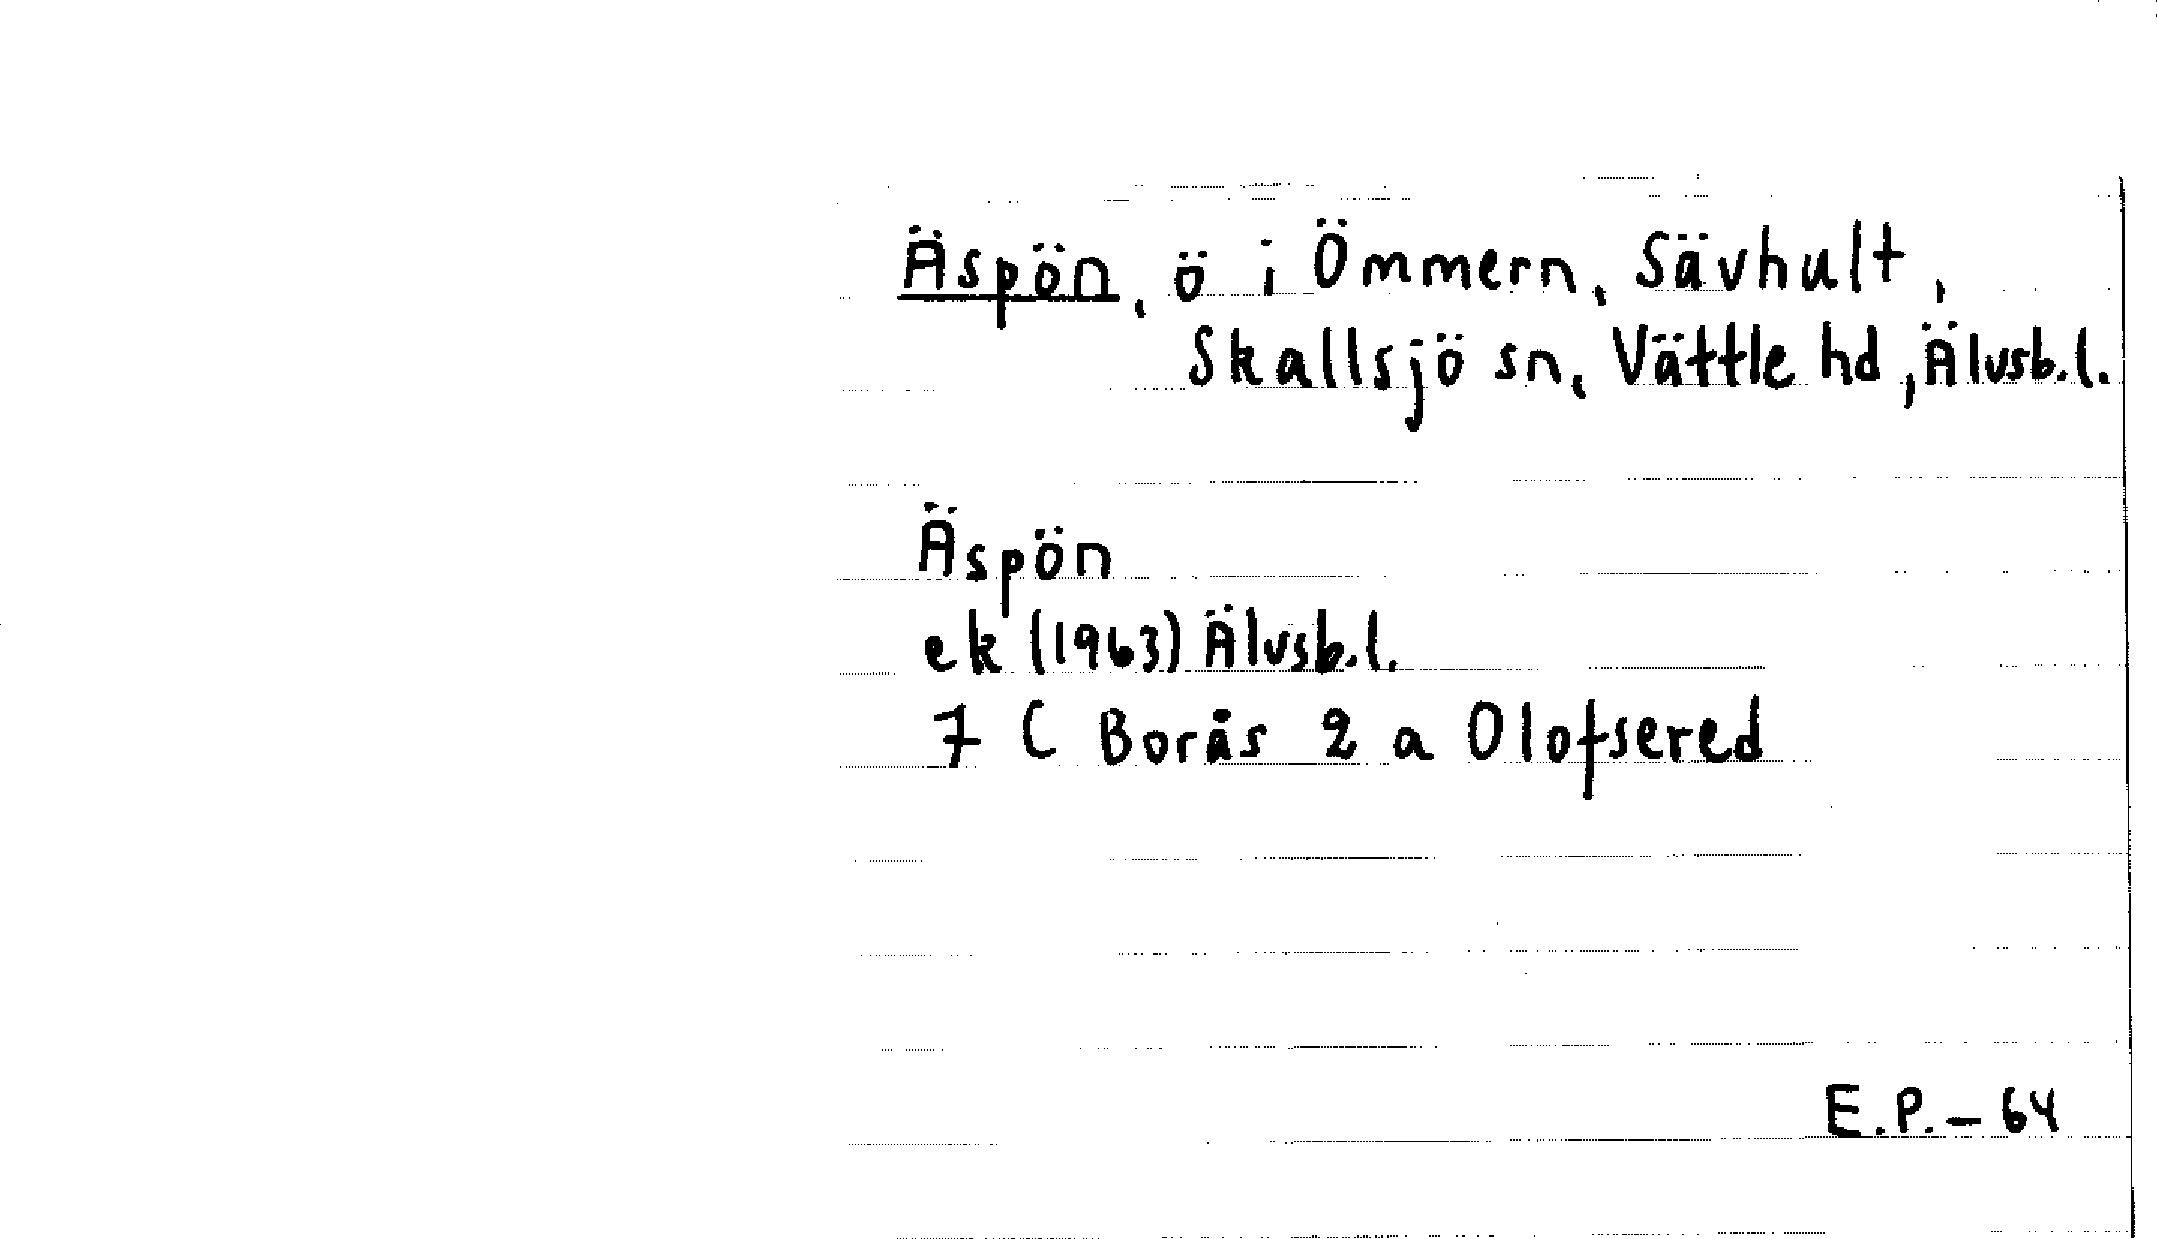 Äspön, ö i Ömmern, Sävhult,
Skallsjö sn, Vättle hd, Älvsb.l.
Äspön
ek (1963) Älvsb.l.
7 C Borås 2 a Olofsered
E.P. - 64